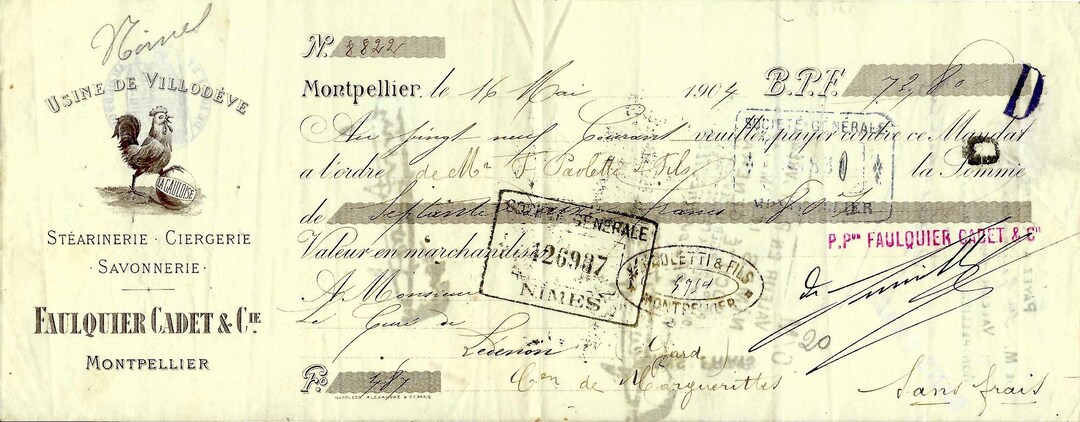 Nimes
USINE DE VILLODÈVE
LA GAULOISE
STÉARINERIE · CIERGERIE
· SAVONNERIE ·
FAULQUIER CADET & CIE
MONTPELLIER
N. 8822
Montpellier, le 16 Mai 1904 B.P.F. 72,80
D
Au vingt neuf Courant veuillez payer contre ce Mandat
à l'ordre de Mr F. Paoletti & Fils la Somme
de Septante francs 80
SOCIÉTÉ GÉNÉRALE
MONTPELLIER
P.Pon FAULQUIER CADET & Cie
Valeur en marchandises
SOCIÉTÉ GÉNÉRALE
426987
NIMES
PAOLETTI & FILS
MONTPELLIER
A Monsieur
Le Curé de
Ledenon (Gard)
20
Fo 487
Con de Marguerittes
Sans frais
NAPOLÉON ALEXANDRE & Cie PARIS